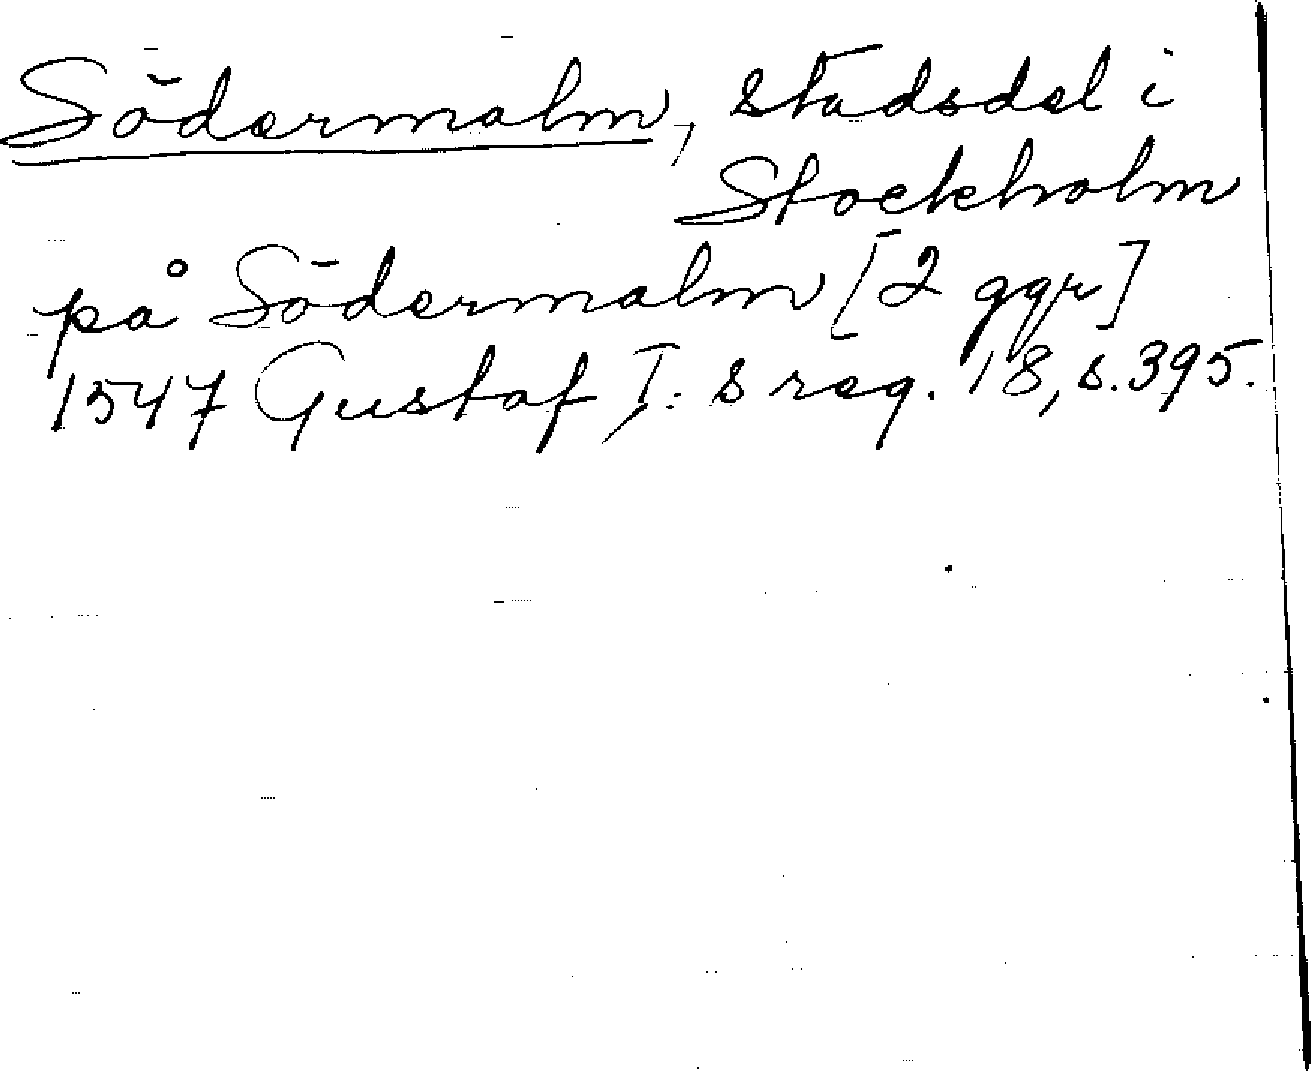 Södermalm, stadsdel i
Stockholm
på Södermalm [2 ggr]
1547 Gustaf I:s reg. 18, s. 395.